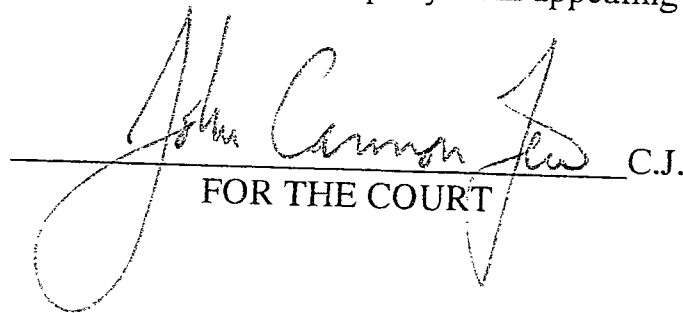 appealing
John Cannon Few C.J.
FOR THE COURT